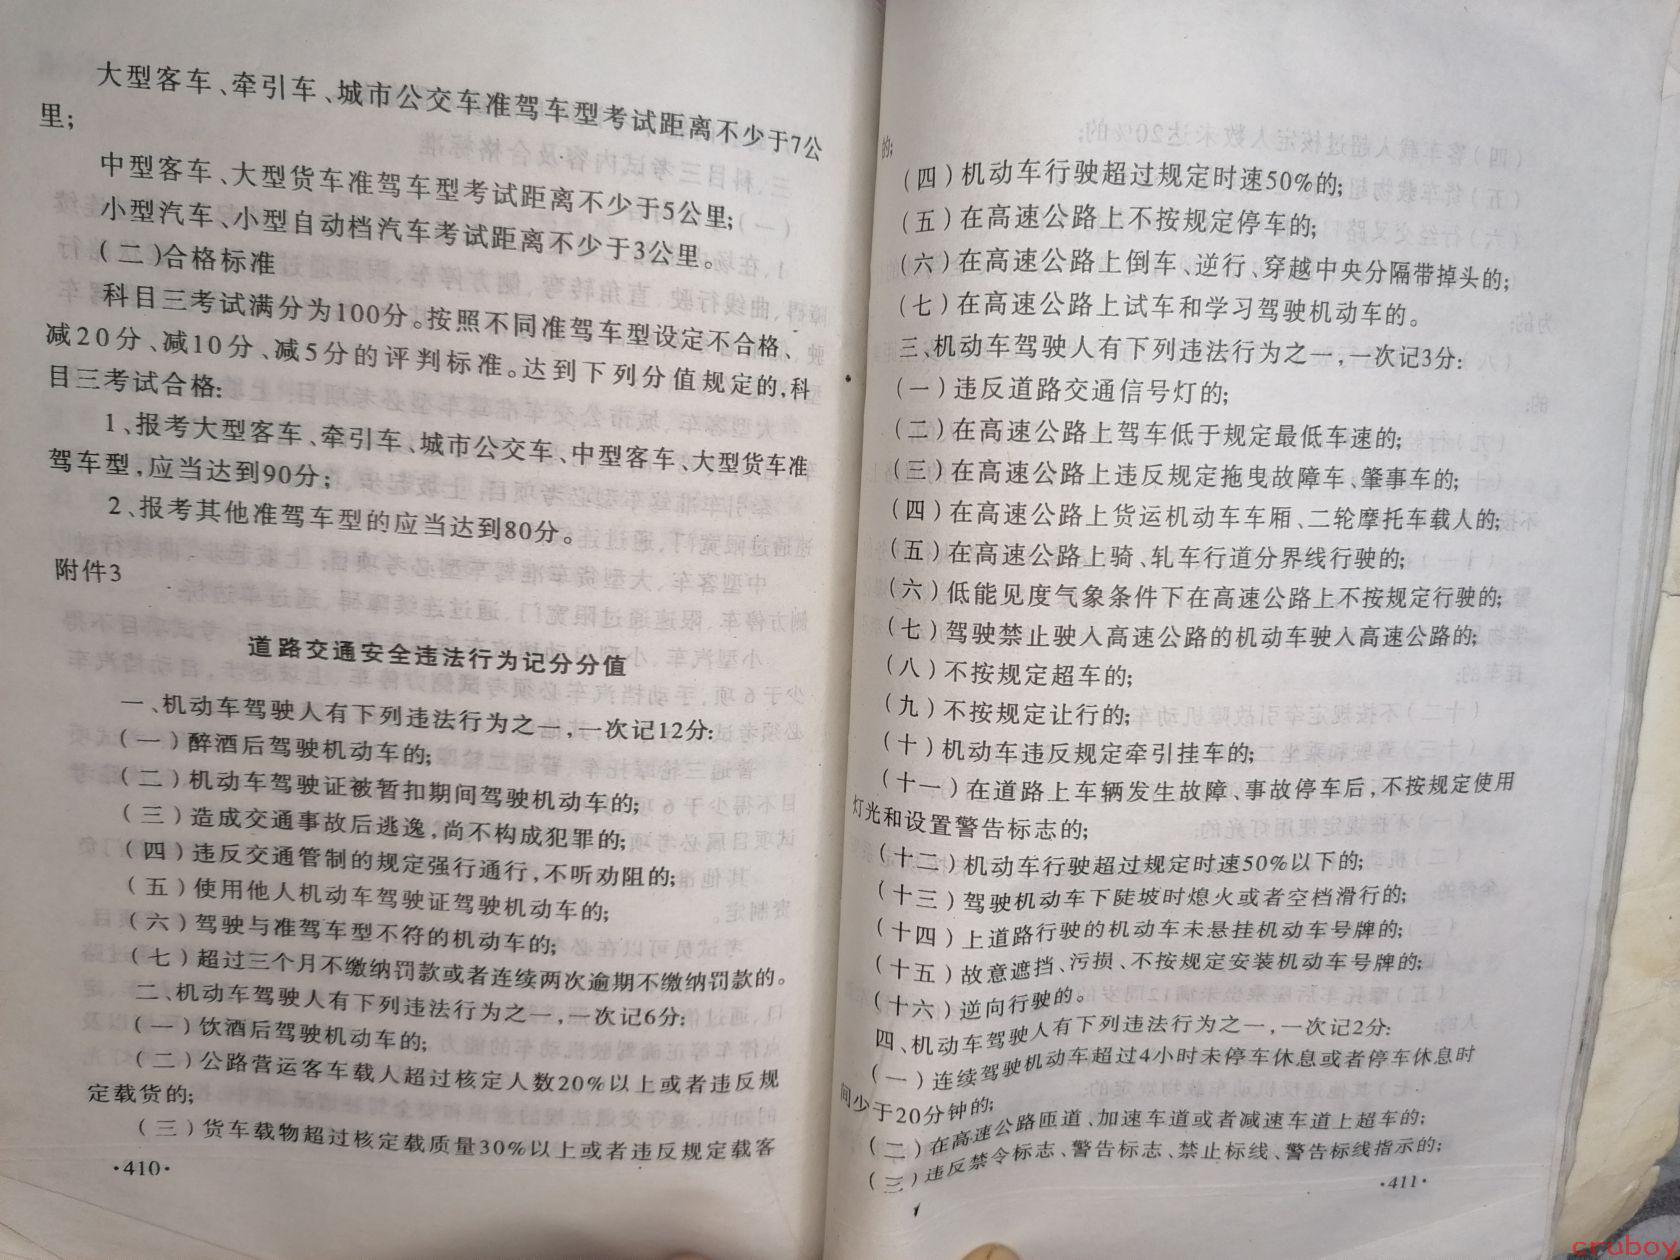 大型客车、牵引车、城市公交车准驾车型考试距离不少于7公
里;
中型客车、大型货车准驾车型考试距离不少于5公里;
小型汽车、小型自动档汽车考试距离不少于3公里。
(二)合格标准
科目三考试满分为100分。按照不同准驾车型设定不合格、
减20分、减10分、减5分的评判标准。达到下列分值规定的,科
目三考试合格:
1、报考大型客车、牵引车、城市公交车、中型客车、大型货车准
驾车型,应当达到90分;
2、报考其他准驾车型的应当达到80分。
附件3
道路交通安全违法行为记分分值
一、机动车驾驶人有下列违法行为之一,一次记12分:
(一)醉酒后驾驶机动车的;
(二)机动车驾驶证被暂扣期间驾驶机动车的;
(三)造成交通事故后逃逸,尚不构成犯罪的;
(四)违反交通管制的规定强行通行,不听劝阻的;
(五)使用他人机动车驾驶证驾驶机动车的;
(六)驾驶与准驾车型不符的机动车的;
(七)超过三个月不缴纳罚款或者连续两次逾期不缴纳罚款的。
二、机动车驾驶人有下列违法行为之一,一次记6分:
(一)饮酒后驾驶机动车的;
(二)公路营运客车载人超过核定人数20%以上或者违反规
定载货的;
(三)货车载物超过核定载质量30%以上或者违反规定载客
·410·
的;
(四)机动车行驶超过规定时速50%的;
(五)在高速公路上不按规定停车的;
(六)在高速公路上倒车、逆行、穿越中央分隔带掉头的;
(七)在高速公路上试车和学习驾驶机动车的。
三、机动车驾驶人有下列违法行为之一,一次记3分:
(一)违反道路交通信号灯的;
(二)在高速公路上驾车低于规定最低车速的;
(三)在高速公路上违反规定拖曳故障车、肇事车的;
(四)在高速公路上货运机动车车厢、二轮摩托车载人的;
(五)在高速公路上骑、轧车行道分界线行驶的;
(六)低能见度气象条件下在高速公路上不按规定行驶的;
(七)驾驶禁止驶入高速公路的机动车驶入高速公路的;
(八)不按规定超车的;
(九)不按规定让行的;
(十)机动车违反规定牵引挂车的;
(十一)在道路上车辆发生故障、事故停车后,不按规定使用
灯光和设置警告标志的;
(十二)机动车行驶超过规定时速50%以下的;
(十三)驾驶机动车下陡坡时熄火或者空档滑行的;
(十四)上道路行驶的机动车未悬挂机动车号牌的;
(十五)故意遮挡、污损、不按规定安装机动车号牌的;
(十六)逆向行驶的。
四、机动车驾驶人有下列违法行为之一,一次记2分:
(一)连续驾驶机动车超过4小时未停车休息或者停车休息时
间少于20分钟的;
(二)在高速公路匝道、加速车道或者减速车道上超车的;
(三)违反禁令标志、警告标志、禁止标线、警告标线指示的;
·411·
cruboy